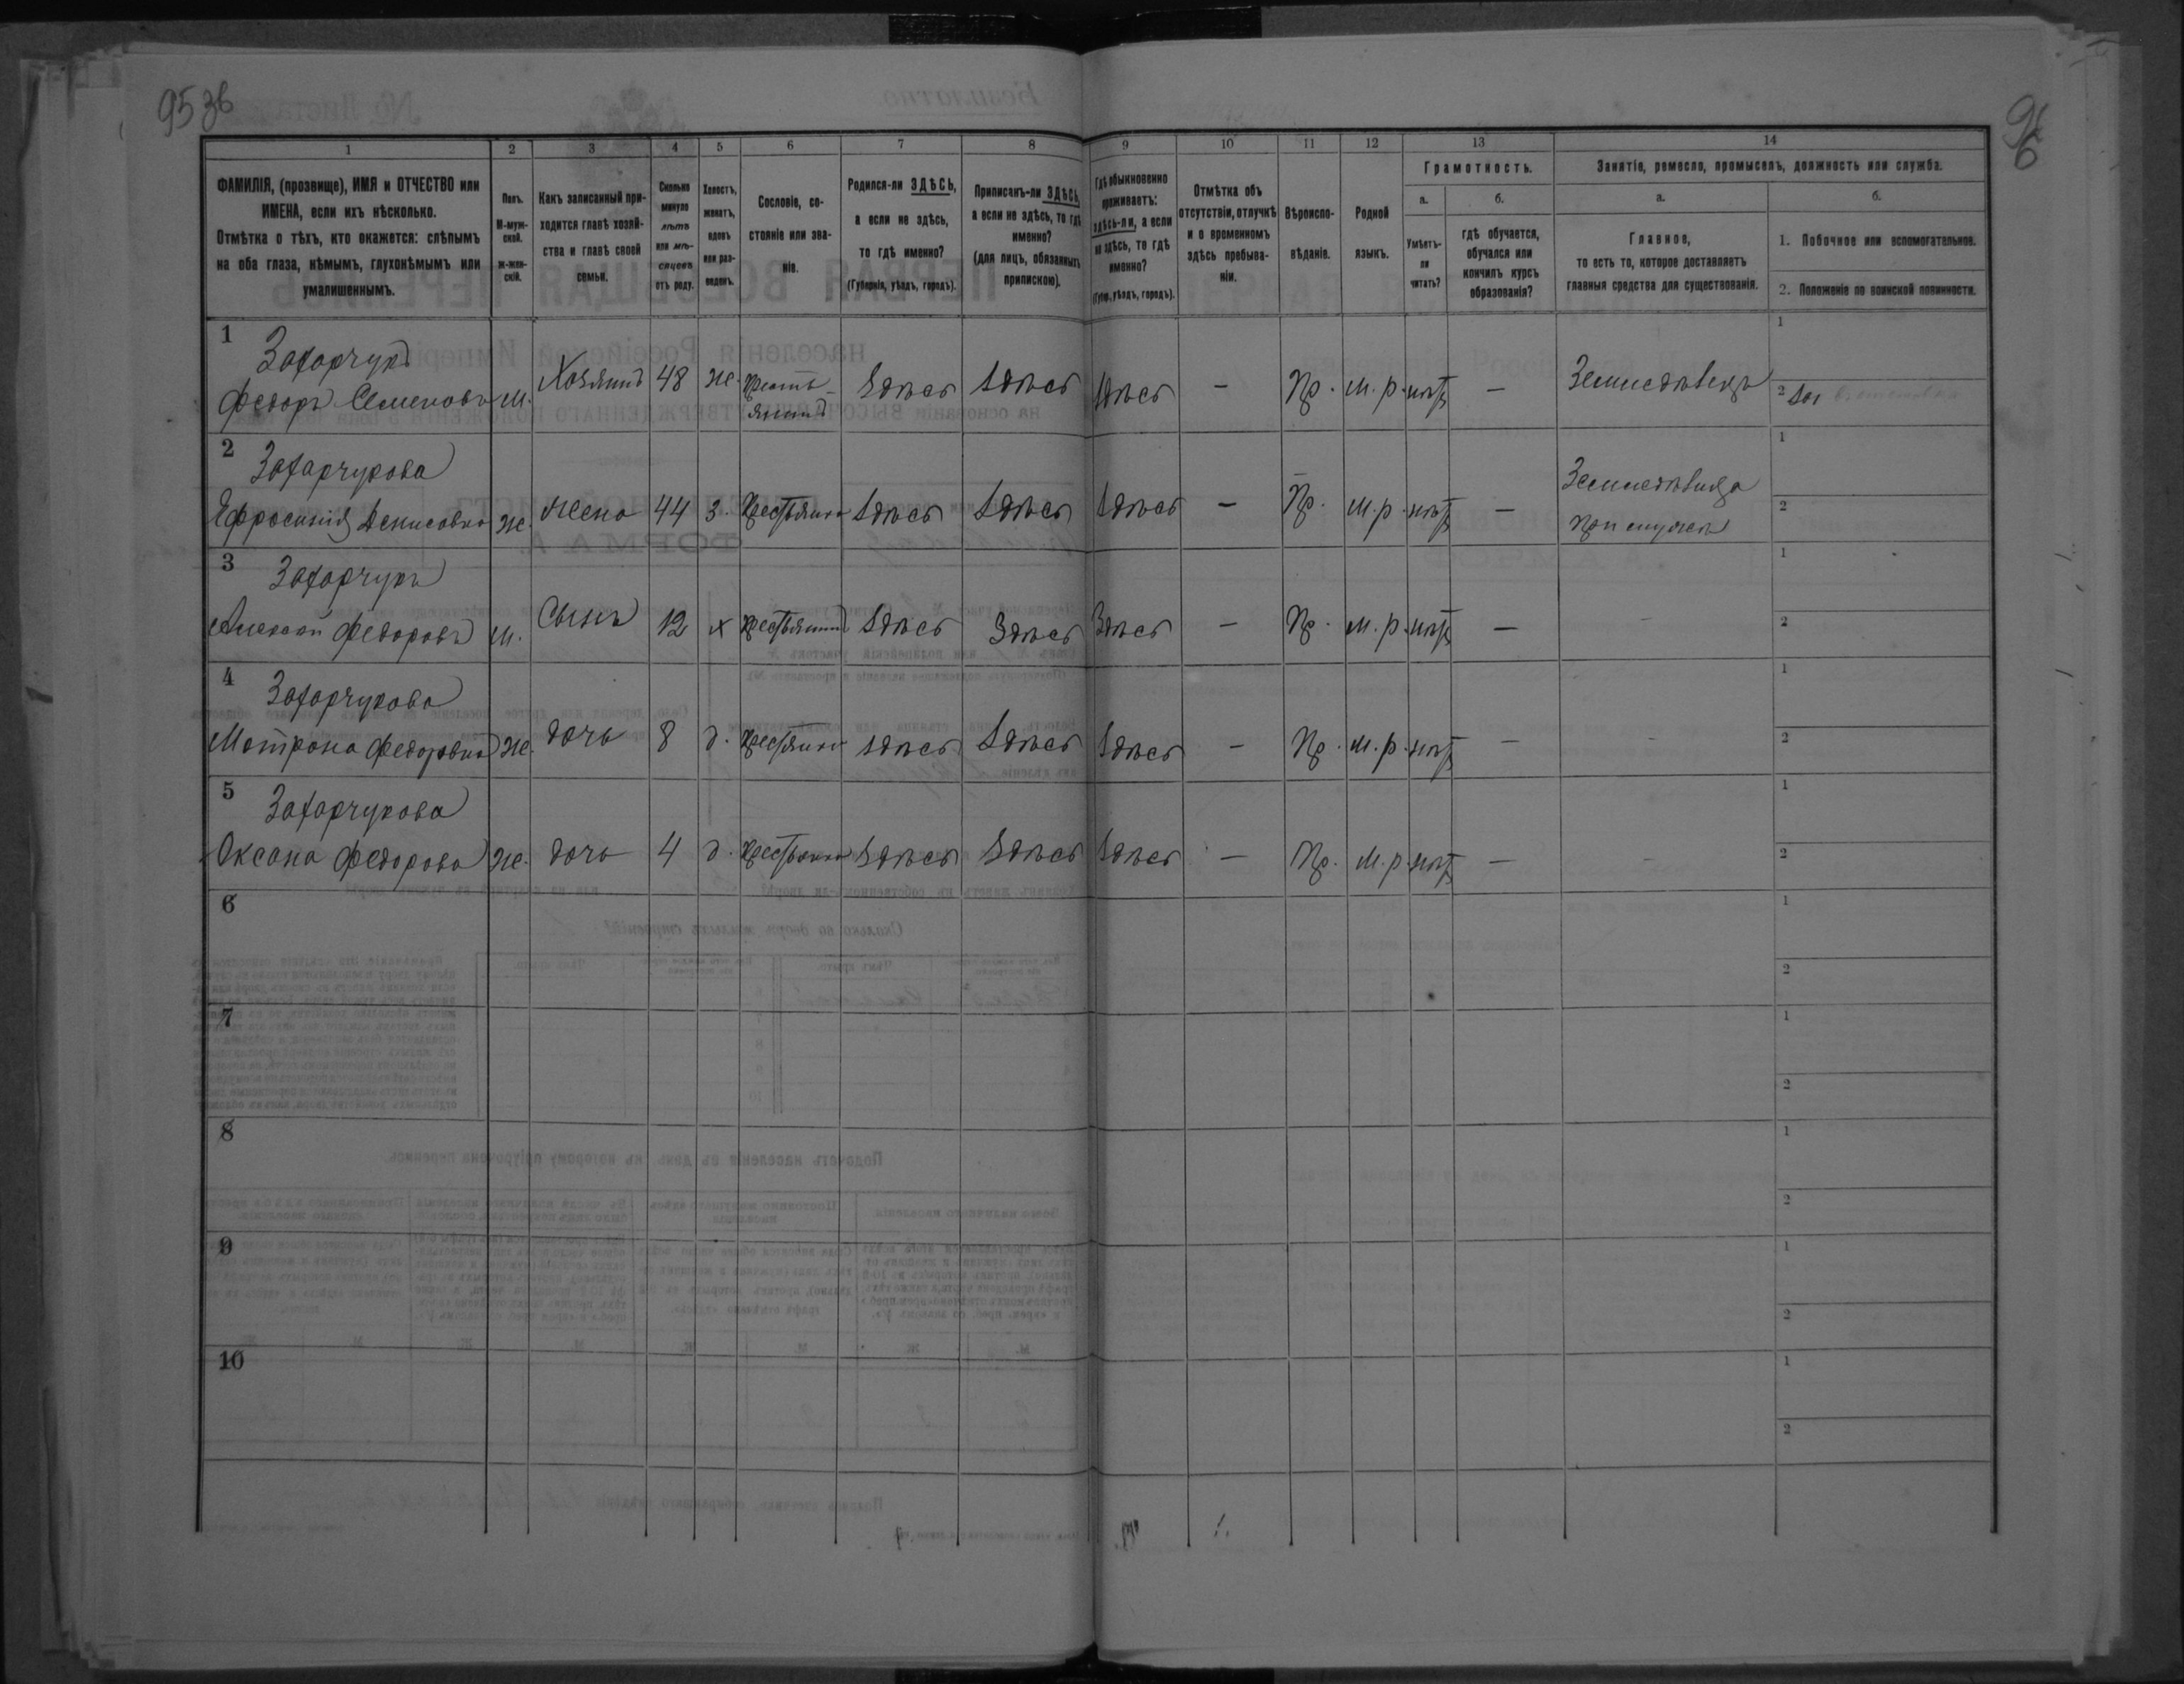 95 зв
96
1 2 3 4 5 6 7 8 9 10 11 12 13 14
ФАМИЛІЯ, (прозвище), ИМЯ и ОТЧЕСТВО или
ИМЕНА, если ихъ нѣсколько.
Отмѣтка о тѣхъ, кто окажется: слѣпымъ
на оба глаза, нѣмымъ, глухонѣмымъ или
умалишеннымъ.
Полъ.
М-муж-
ской.
ж-жен-
скій.
Какъ записанный при-
ходится главѣ хозяй-
ства и главѣ своей
семьи.
Сколько
минуло
лѣтъ
или мѣ-
сяцевъ
отъ роду.
Холостъ,
женатъ,
вдовъ
или раз-
веденъ.
Сословіе, со-
стояніе или зва-
ніе.
Родился-ли ЗДѢСЬ,
а если не здѣсь,
то гдѣ именно?
(Губернія, уѣздъ, городъ).
Приписанъ-ли ЗДѢСЬ,
а если не здѣсь, то гдѣ
именно?
(для лицъ, обязанныхъ
припискою).
Гдѣ обыкновенно
проживаетъ:
здѣсь-ли, а если
не здѣсь, то гдѣ
именно?
(Губер., уѣздъ, городъ).
Отмѣтка объ
отсутствіи, отлучкѣ
и о временномъ
здѣсь пребыва-
ніи.
Вѣроиспо-
вѣданіе.
Родной
языкъ.
Грамотность.
а.
Умѣетъ-
ли
читать?
б.
гдѣ обучается,
обучался или
кончилъ курсъ
образованія?
Занятіе, ремесло, промыселъ, должность или служба.
а.
Главное,
то есть то, которое доставляетъ
главныя средства для существованія.
б.
1. Побочное или вспомогательное.
2. Положеніе по воинской повинности.
1 Захарчукъ
Федоръ Семеновъ м. Хозяинъ 48 ж. Кресть- Здѣсь Здѣсь Здѣсь — Пр. м.р. нѣтъ — Земледѣлецъ 1
янинъ 2
2 Захарчукова
Ефросинія Денисовна ж. жена 44 з. Крестьянка Здѣсь Здѣсь Здѣсь — Пр. м.р. нѣтъ — Земледѣлица 1
при мужѣ 2
3 Захарчукъ
Алексѣй Федоровъ м. Сынъ 12 х Крестьянинъ Здѣсь Здѣсь Здѣсь — Пр. м.р. нѣтъ — - 1
2
4 Захарчукова
Мотрона Федоровна ж. дочь 8 д. Крестьянка Здѣсь Здѣсь Здѣсь — Пр. м.р. нѣтъ — - 1
2
5 Захарчукова
Оксана Федорова ж. дочь 4 д. Крестьянка Здѣсь Здѣсь Здѣсь — Пр. м.р. нѣтъ — - 1
2
6 1
2
7 1
2
8 1
2
9 1
2
10 1
2